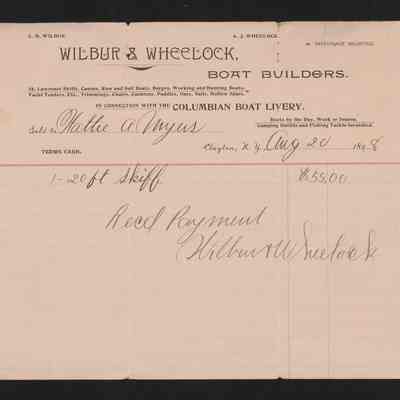 L. E. WILBUR. A. J. WHEELOCK.
WILBUR & WHEELOCK,
BOAT BUILDERS.
St. Lawrence Skiffs, Canoes, Row and Sail Boats, Barges, Working and Hunting Boats,
Yacht Tenders, Etc., Trimmings, Chairs, Cushions, Paddles, Oars, Sails,
IN CONNECTION WITH THE COLUMBIAN BOAT LIVERY.
Boats by the Day, Week or Season.
Camping Outfits and Fishing Tackle furnished.
Sold to Hattie A Myers
Clayton, N. Y. Aug 20 1898
TERMS CASH.
1 - 20 ft Skiff $55.00
Recd Payment
Wilbur & Wheelock